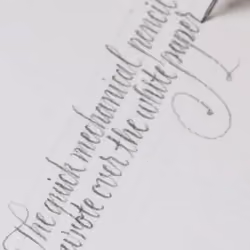 The quick mechanical pencil
wrote over the white paper